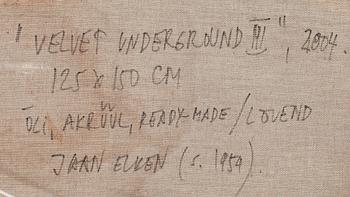 "VELVET UNDERGROUND III", 2004.
125 x 150 CM
ÕLI, AKRÜÜL, READY-MADE/LÕUEND
JAAN ELKEN (S. 1954).